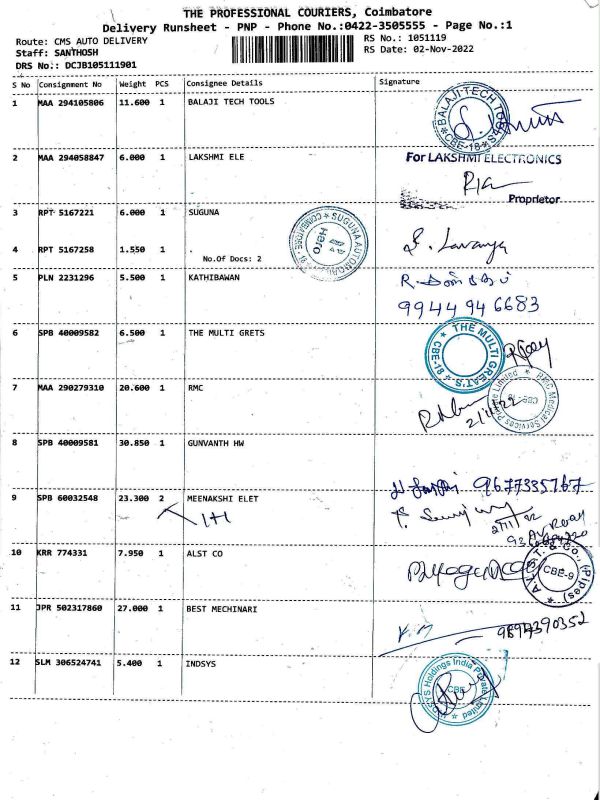 THE PROFESSIONAL COURIERS, Coimbatore
Delivery Runsheet - PNP - Phone No.:0422-3505555 - Page No.:1
Route: CMS AUTO DELIVERY
Staff: SANTHOSH
DRS No.: DCJB105111901
RS No.: 1051119
RS Date: 02-Nov-2022
S No Consignment No Weight PCS Consignee Details Signature
1 MAA 294105806 11.600 1 BALAJI TECH TOOLS
BALAJI TECH
CBE-18
2 MAA 294058847 6.000 1 LAKSHMI ELE
For LAKSHMI ELECTRONICS
Proprietor
3 RPT 5167221 6.000 1 SUGUNA
4 RPT 5167258 1.550 1 .
No.Of Docs: 2
S. Lavanya
5 PLN 2231296 5.500 1 KATHIBAWAN
9944946683
6 SPB 40009582 6.500 1 THE MULTI GRETS
THE MULTI GREAT'S
CBE-18
7 MAA 290279310 20.600 1 RMC
RMC Medical Services Private Limited
2/11/22
8 SPB 40009581 30.850 1 GUNVANTH HW
9677335767
9 SPB 60032548 23.300 2 MEENAKSHI ELET
1+1
2/11/22
10 KRR 774331 7.950 1 ALST CO
CBE-9
(Pipes)
11 JPR 502317860 27.000 1 BEST MECHINARI
9894390352
12 SLM 306524741 5.400 1 INDSYS
INDSYS Holdings India Private Limited
CBE